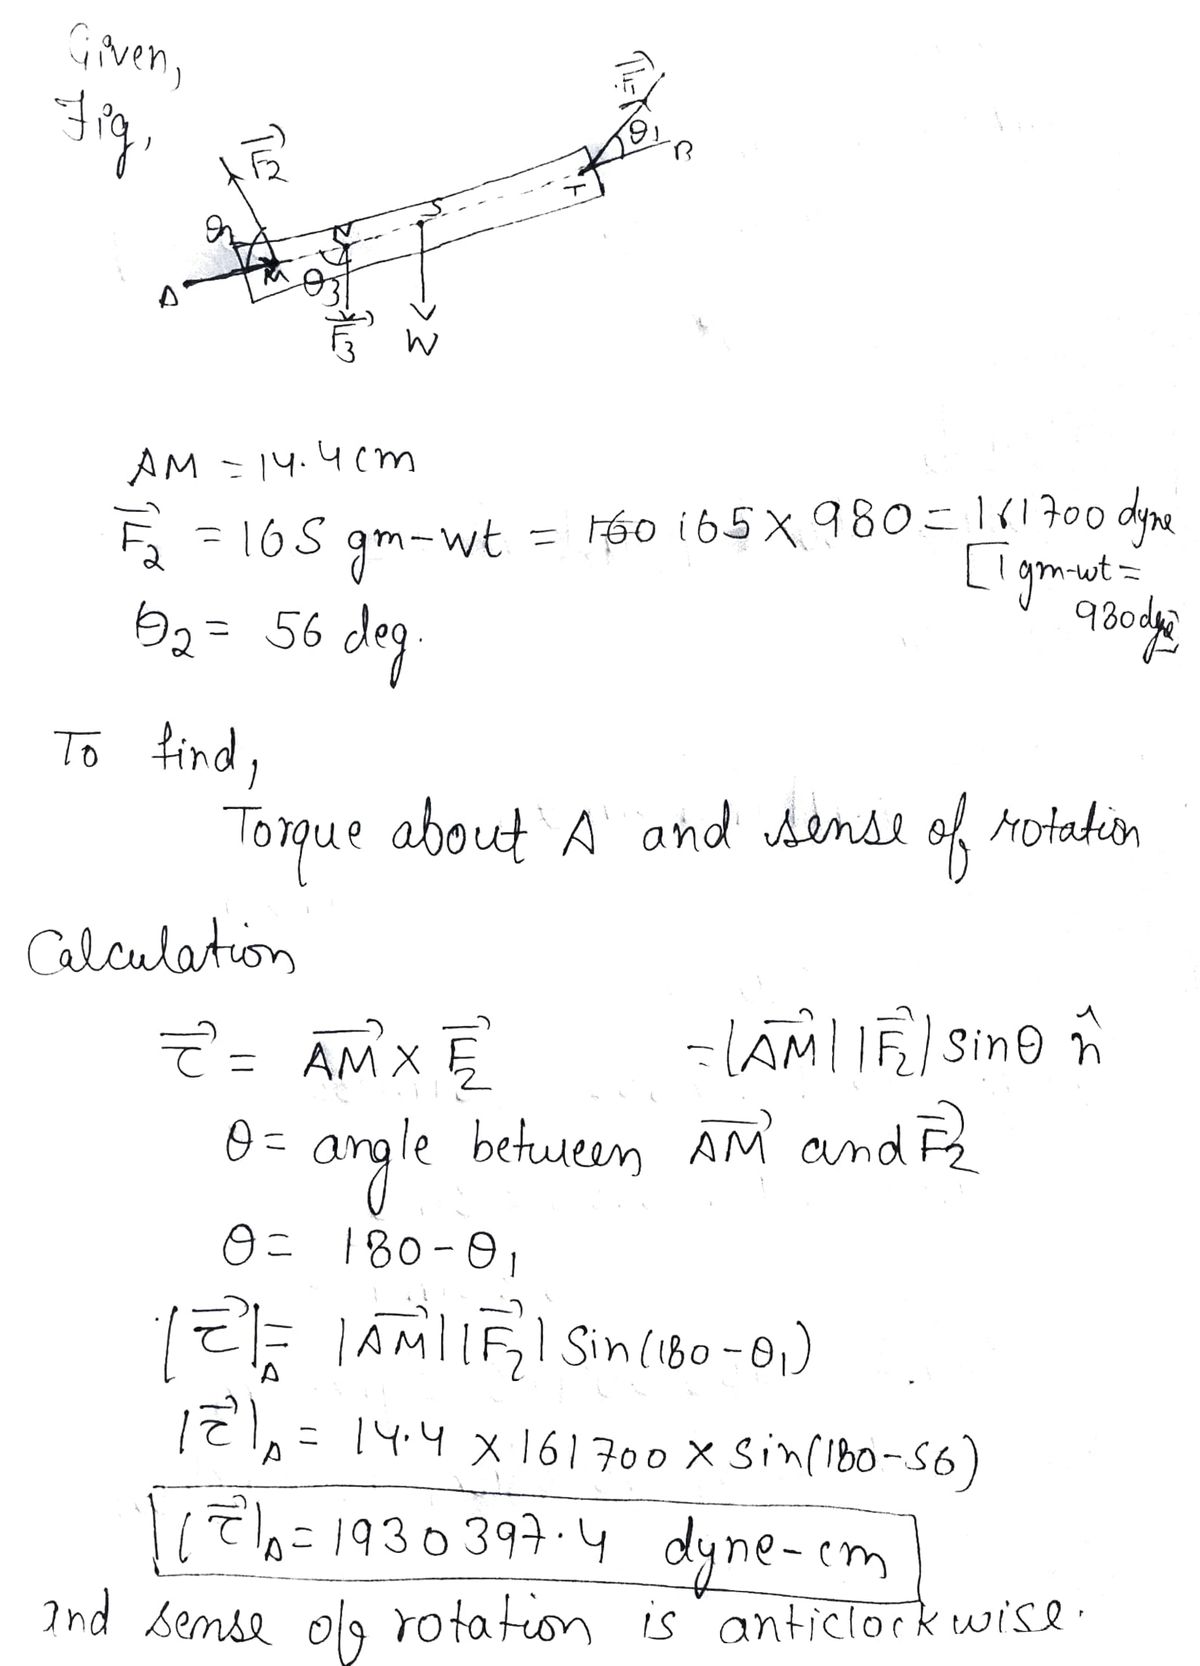 Given,
Fig,
F₁
θ₁
B
F₂
T
S
θ₂
N
M
A
θ₃
F₃
W
AM = 14.4 cm
F₂ = 165 gm-wt = 160 165 × 980 = 161700 dyne
[1 gm-wt =
980 dyne]
θ₂ = 56 deg.
To find,
Torque about A and sense of rotation
Calculation
τ = AM × F₂ = |AM| |F₂| sinθ n̂
θ = angle between AM and F₂
θ = 180 - θ₁
|τ|_A = |AM| |F₂| Sin(180 - θ₁)
|τ|_A = 14.4 × 161700 × Sin(180-56)
|τ|_A = 1930397.4 dyne-cm
and sense of rotation is anticlockwise.